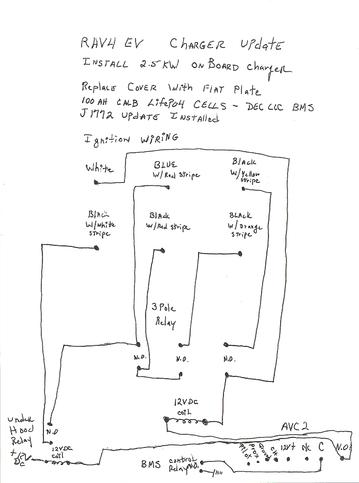 RAV4 EV CHARGER UPDATE
INSTALL 2.5 KW ON BOARD Charger
Replace COVER With FLAT Plate
100 AH CALB LifePO4 CELLS - DEC LLC BMS
J1772 UPDATE INSTALLED
Ignition WIRING
White
BLUE
W/Red Stripe
Black
W/Yellow
Stripe
Black
W/White
Stripe
Black
W/Red Stripe
BLACK
W/Orange
Stripe
3 Pole
Relay
N.O.
N.O.
N.O.
12VDC
coil
AVC2
under
Hood
Relay
N.O.
12VDC
coil
BMS
Control
Relay
N.O.
Pilot
Prox
Gnd
12V+
N/C
C
N.O.